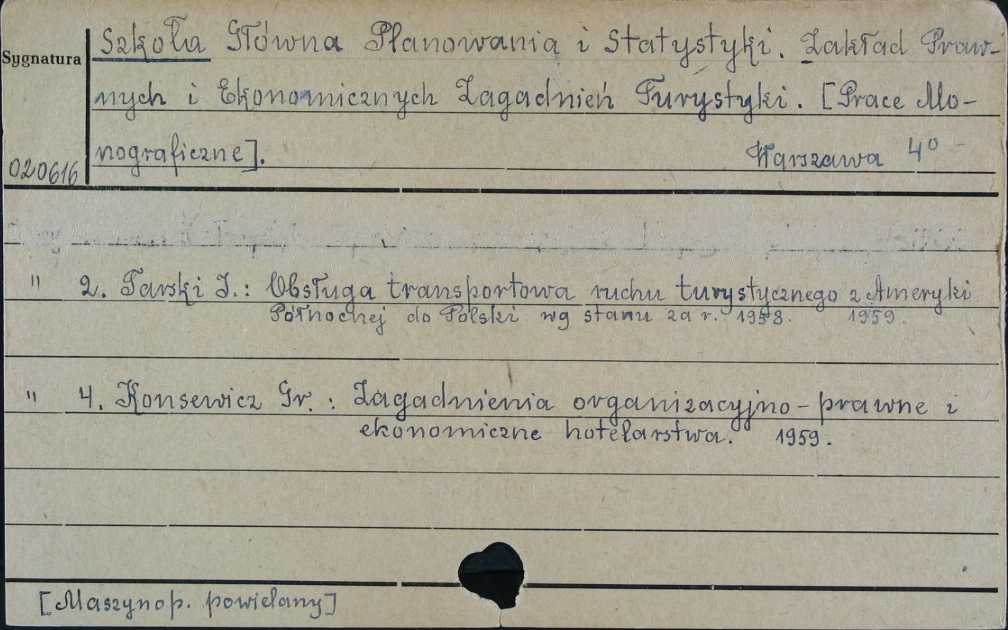 Szkoła Główna Planowania i Statystyki. Zakład Praw-
Sygnatura
nych i Ekonomicznych Zagadnień Turystyki. [Prace Mo-
nograficzne]. Warszawa 4°
020616
" 2. Tarski I.: Obsługa transportowa ruchu turystycznego z Ameryki
Północnej do Polski wg stanu za r. 1958. 1959.
" 4. Konsewicz Gr.: Zagadnienia organizacyjno-prawne i
ekonomiczne hotelarstwa. 1959.
[Maszynop. powielany]